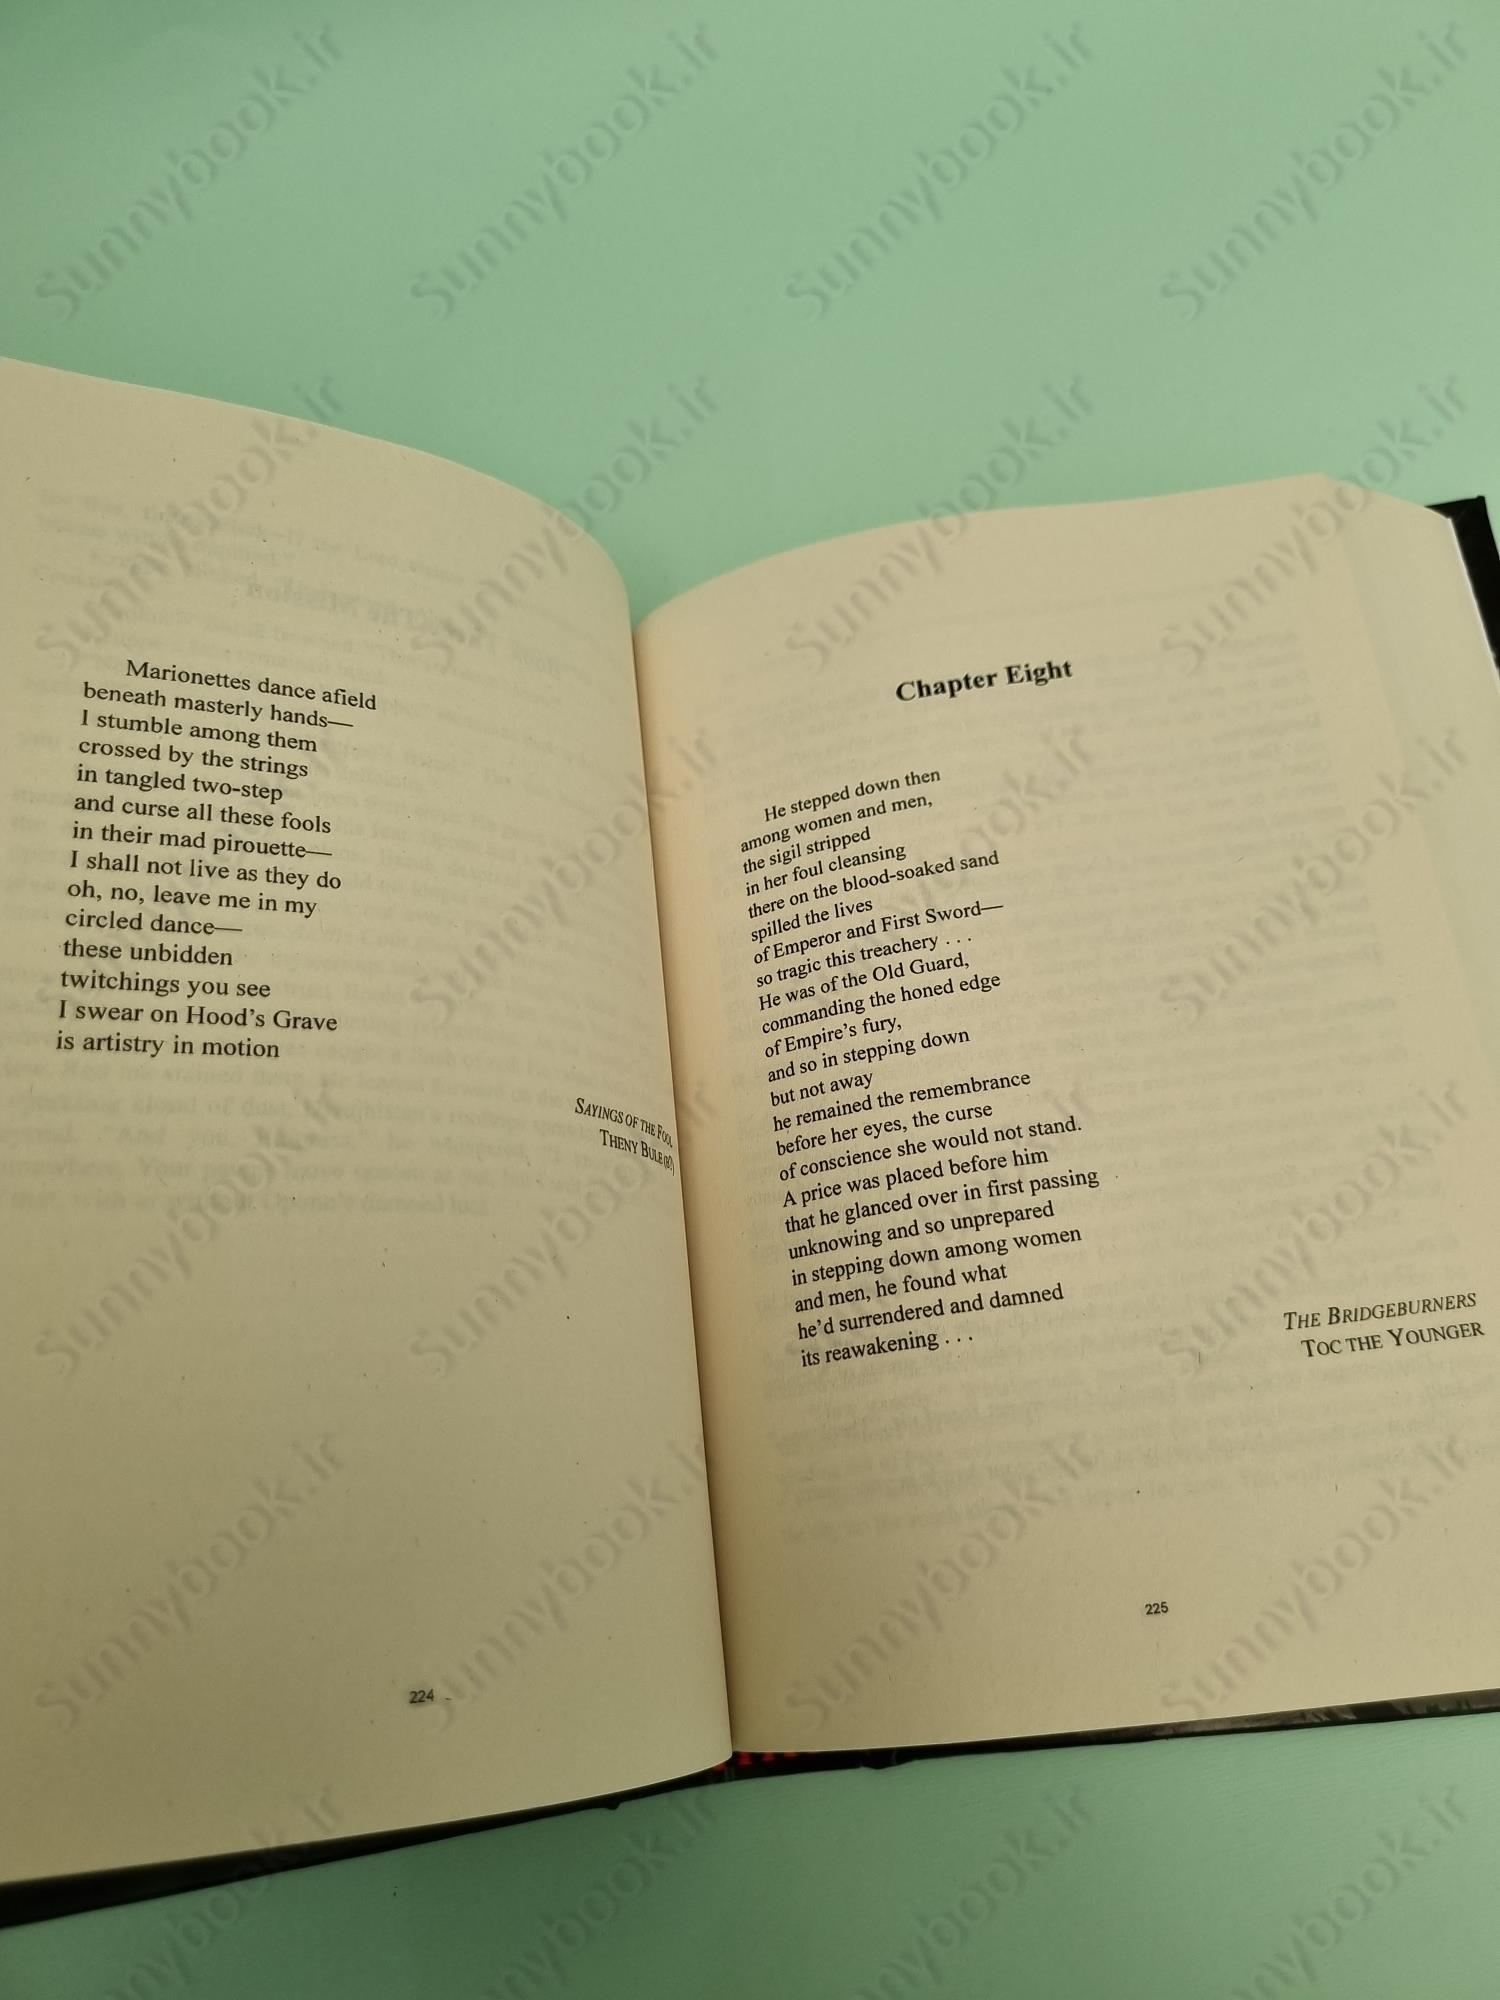 Marionettes dance afield
beneath masterly hands—
I stumble among them
crossed by the strings
in tangled two-step
and curse all these fools
in their mad pirouette—
I shall not live as they do
oh, no, leave me in my
circled dance—
these unbidden
twitchings you see
I swear on Hood's Grave
is artistry in motion
SAYINGS OF THE FOOL
THENY BULE (B?)
224
Chapter Eight
He stepped down then
among women and men,
the sigil stripped
in her foul cleansing
there on the blood-soaked sand
spilled the lives
of Emperor and First Sword—
so tragic this treachery . . .
He was of the Old Guard,
commanding the honed edge
of Empire's fury,
and so in stepping down
but not away
he remained the remembrance
before her eyes, the curse
of conscience she would not stand.
A price was placed before him
that he glanced over in first passing
unknowing and so unprepared
in stepping down among women
and men, he found what
he'd surrendered and damned
its reawakening . . .
THE BRIDGEBURNERS
TOC THE YOUNGER
225
Sunnybook.ir